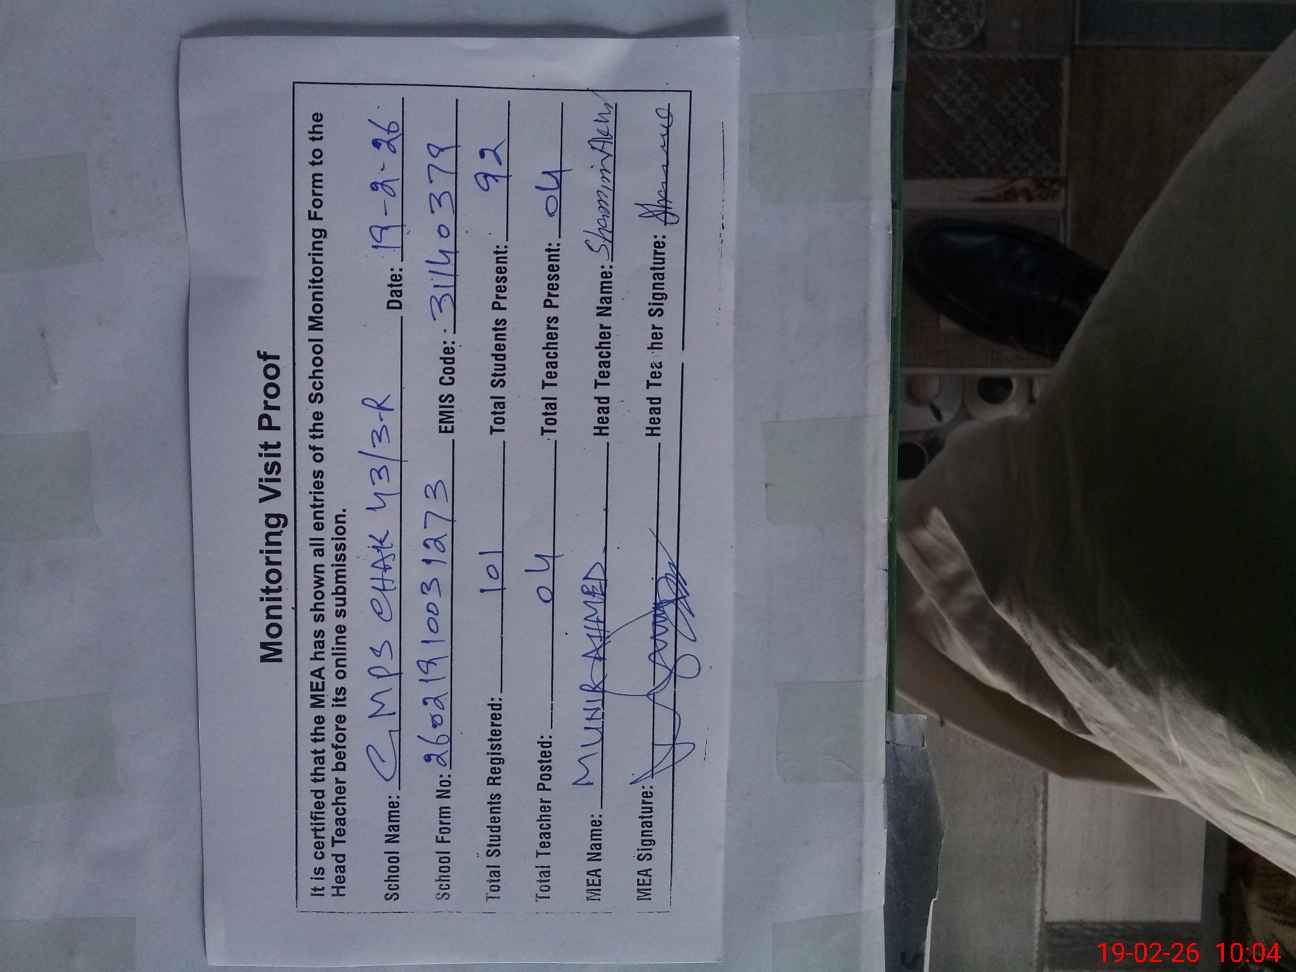 Monitoring Visit Proof
It is certified that the MEA has shown all entries of the School Monitoring Form to the
Head Teacher before its online submission.
School Name: GMPS CHAK 43/3-R Date: 19-2-26
School Form No: 26021910031273 EMIS Code: 31140379
Total Students Registered: 101 Total Students Present: 92
Total Teacher Posted: 04 Total Teachers Present: 04
MEA Name: MUNIR AHMED Head Teacher Name: Shamim
MEA Signature: Head Teacher Signature:
19-02-26 10:04